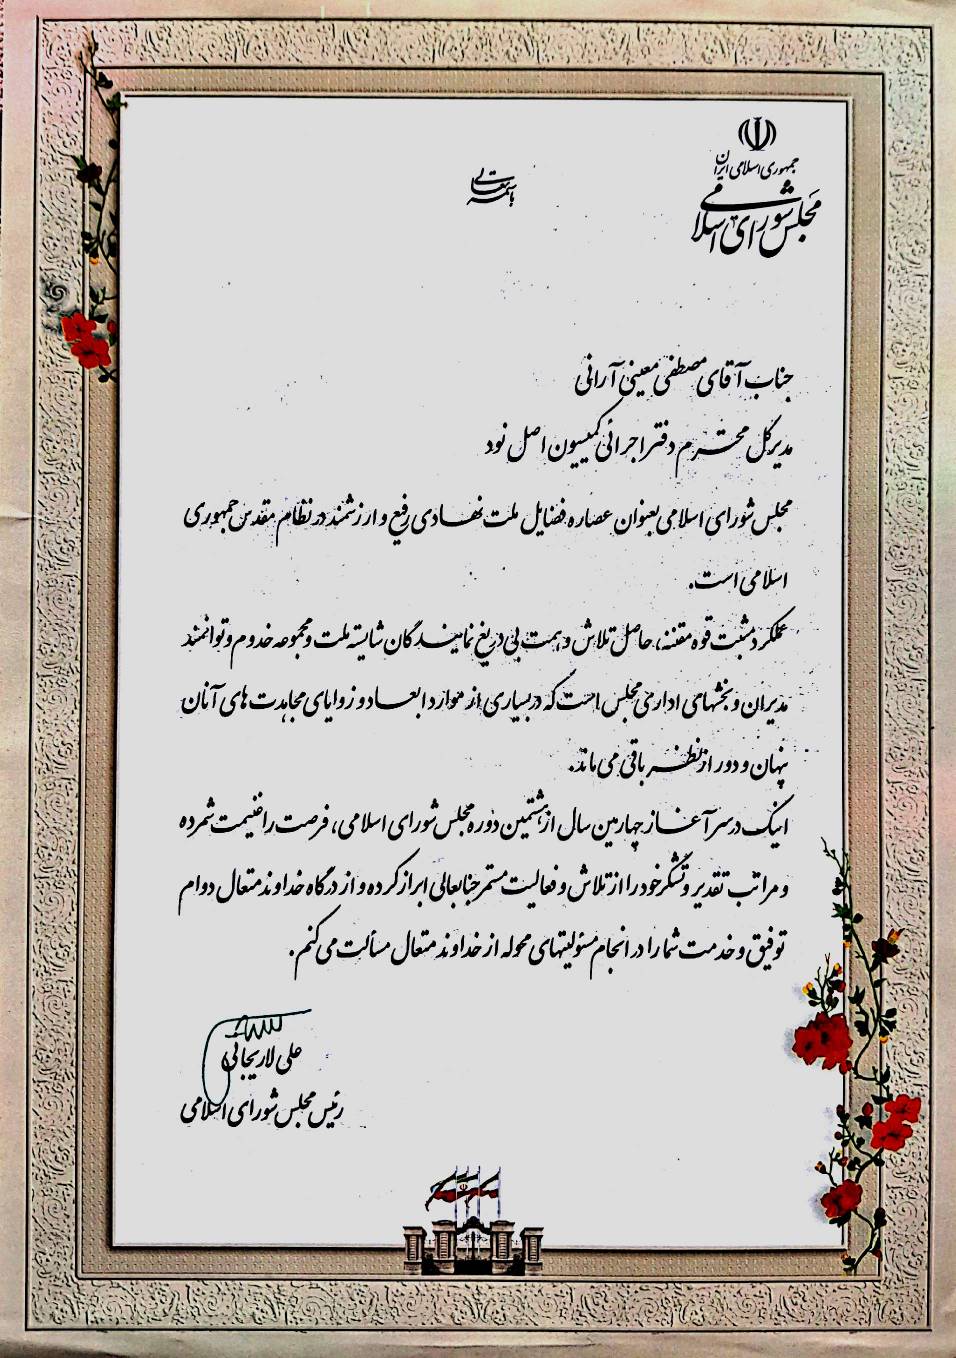 جمهوری اسلامی ایران
مجلس شورای اسلامی
باسمه تعالی
جناب آقای مصطفی معینی آرانی
مدیرکل محترم دفتر اجرائی کمیسیون اصل نود
مجلس شورای اسلامی بعنوان عصاره فضایل ملت نهادی رفیع و ارزشمند در نظام مقدس جمهوری
اسلامی است.
عملکرد مثبت قوه مقننه، حاصل تلاش و همت بی دریغ نمایندگان شایسته ملت و مجموعه خدوم و توانمند
مدیران و بخشهای اداری مجلس است که در بسیاری از موارد ابعاد و زوایای مجاهدت های آنان
پنهان و دور از نظر باقی می ماند.
اینک در سرآغاز چهارمین سال از هشتمین دوره مجلس شورای اسلامی، فرصت را غنیمت شمرده
و مراتب تقدیر و تشکر خود را از تلاش و فعالیت مستمر جنابعالی ابراز کرده و از درگاه خداوند متعال دوام
توفیق و خدمت شما را در انجام مسئولیتهای محوله از خداوند متعال مسألت می کنم.
علی لاریجانی
رئیس مجلس شورای اسلامی